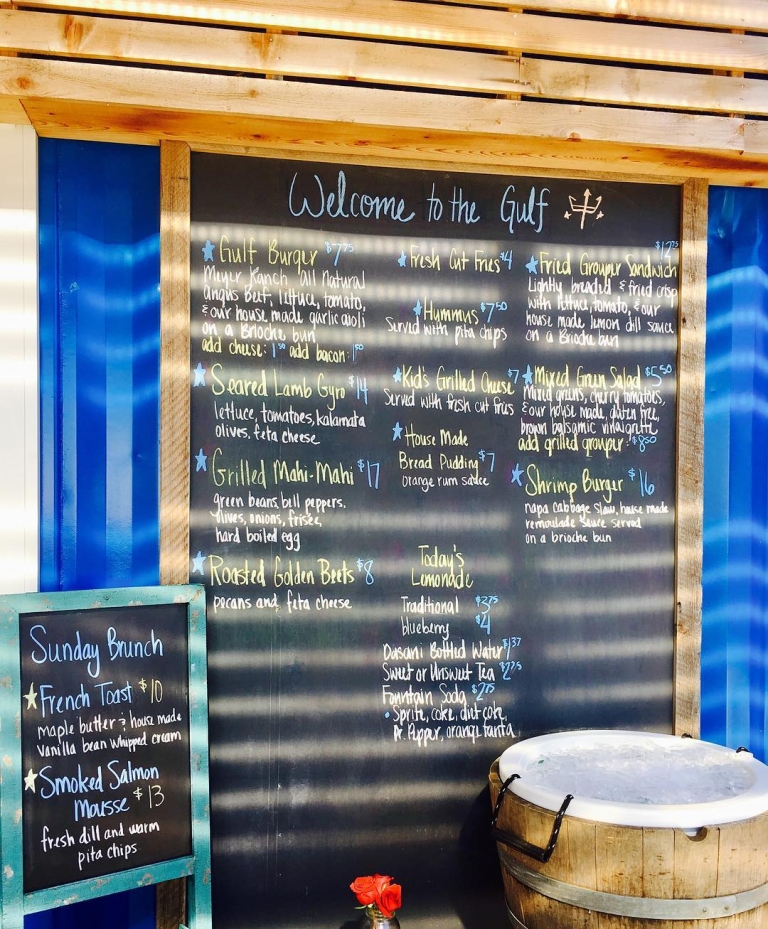 Welcome to the Gulf
Gulf Burger $7.75
Meyer Ranch all Natural
angus beef, lettuce, tomato,
& our house made garlic aioli
on a Brioche bun
add cheese: 1.50 add bacon: 1.50
Seared Lamb Gyro $14
lettuce, tomatoes, kalamata
olives, feta cheese
Grilled Mahi-Mahi $17
green beans, bell peppers,
olives, onions, frisée,
hard boiled egg
Roasted Golden Beets $8
pecans and feta cheese
Fresh Cut Fries $4
Hummus $7.50
Served with pita chips
Kid's Grilled Cheese $7
Served with fresh cut fries
House Made
Bread Pudding $7
orange rum sauce
Today's
Lemonade
Traditional $3.75
blueberry $4
Dasani Bottled Water $1.37
Sweet or Unsweet Tea $2.75
Fountain Soda $2.75
• Sprite, coke, diet coke,
Dr. Pepper, orange fanta
$12.75
Fried Grouper Sandwich
Lightly breaded & fried crisp
with lettuce, tomato, & our
house made lemon dill sauce
on a Brioche bun
Mixed Green Salad $5.50
Mixed greens, cherry tomatoes,
& our house made, gluten free,
brown balsamic vinaigrette
add grilled grouper: $8.50
Shrimp Burger $16
napa cabbage slaw, house made
remoulade sauce served
on a brioche bun
Sunday Brunch
French Toast $10
maple butter & house made
vanilla bean whipped cream
Smoked Salmon
Mousse $13
fresh dill and warm
pita chips